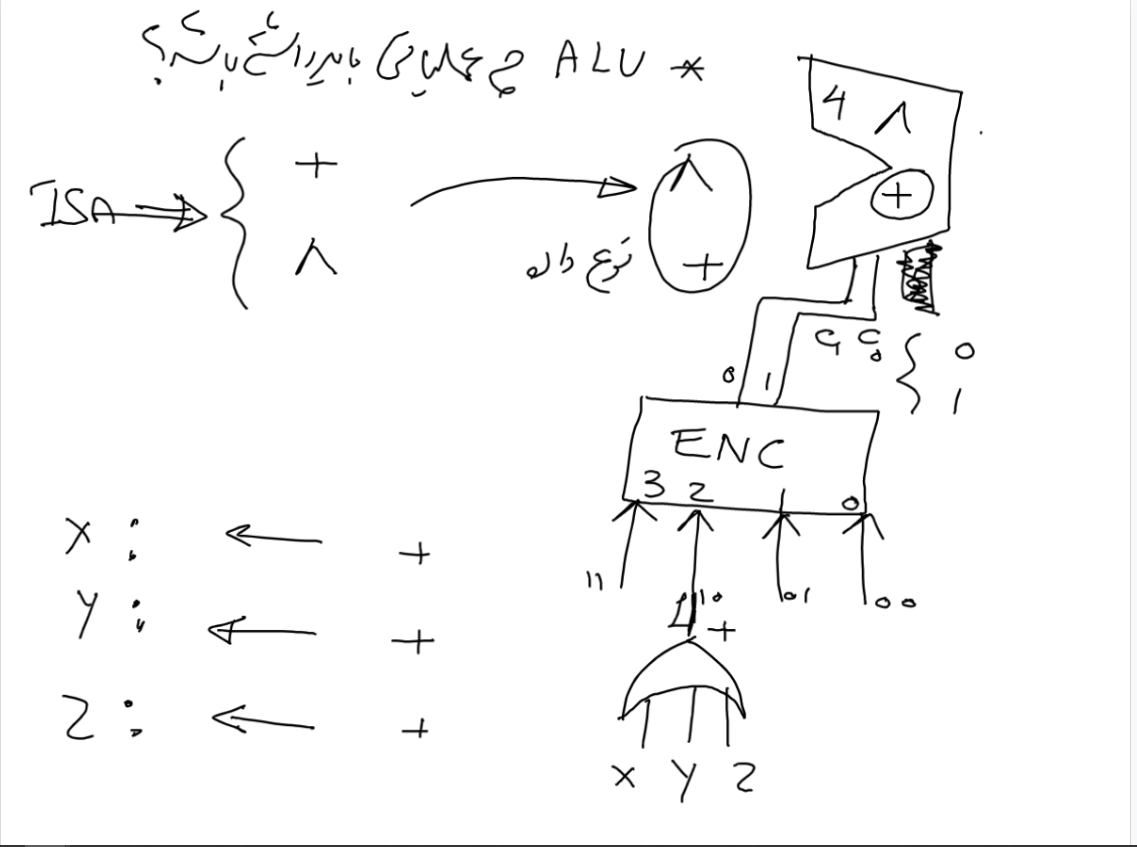 * ALU چه عملیاتی باید داشته باشد؟
ISA ⇒ { + ∧
∧ +
نوع داده
4 ∧
+
C₁ C₀ { 0 1
0 1
ENC
3 2 1 0
11 10 01 00
+
X Y Z
X : ← +
Y : ← +
Z : ← +